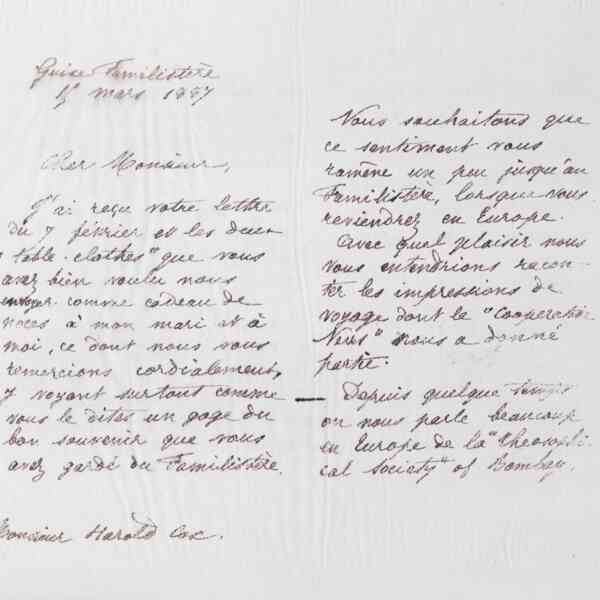 Guise Familistère
15 mars 1887
Cher Monsieur,
J'ai reçu votre lettre
du 7 février et les deux
"table-clothes" que vous
avez bien voulu nous
envoyer comme cadeau de
noces à mon mari et à
moi, ce dont nous vous
remercions cordialement,
y voyant surtout comme
vous le dites un gage du
bon souvenir que vous
avez gardé du Familistère.
Monsieur Harold Cox.
Nous souhaitons que
ce sentiment vous
ramène un peu jusqu'au
Familistère, lorsque vous
reviendrez en Europe.
Avec quel plaisir nous
vous entendrions racon-
ter les impressions de
voyage dont le "Cooperative
News" nous a donné
partie.
Depuis quelque temps
on nous parle beaucoup
en Europe de la "Theosophi-
cal Society" of Bombay.